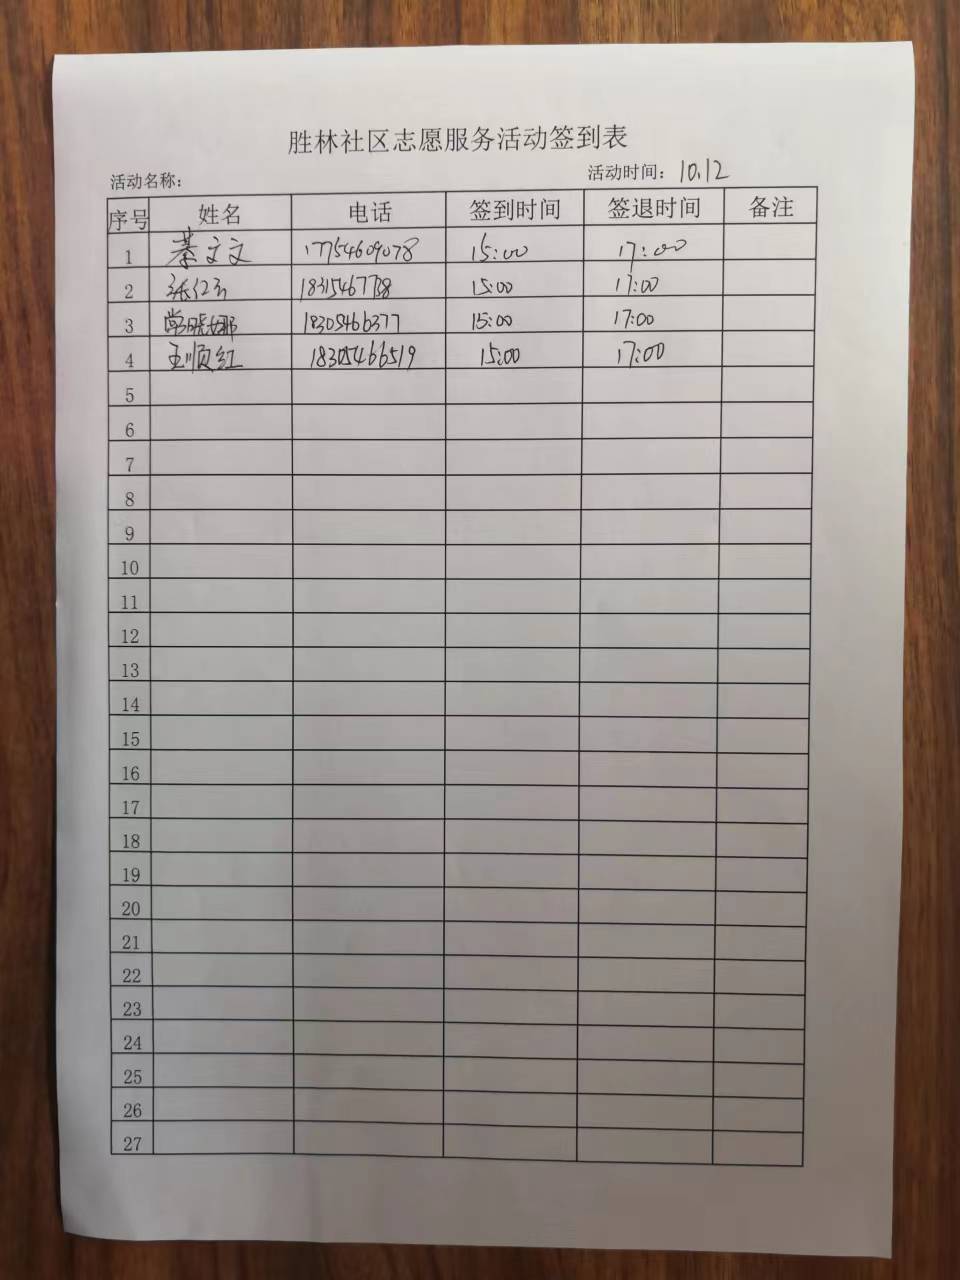 胜林社区志愿服务活动签到表
活动名称： 活动时间：10.12
序号 姓名 电话 签到时间 签退时间 备注
1 綦文文 17754609078 15:00 17:00
2 18315467738 15:00 17:00
3 常晓娜 18305466377 15:00 17:00
4 王顺红 18305466519 15:00 17:00
5
6
7
8
9
10
11
12
13
14
15
16
17
18
19
20
21
22
23
24
25
26
27